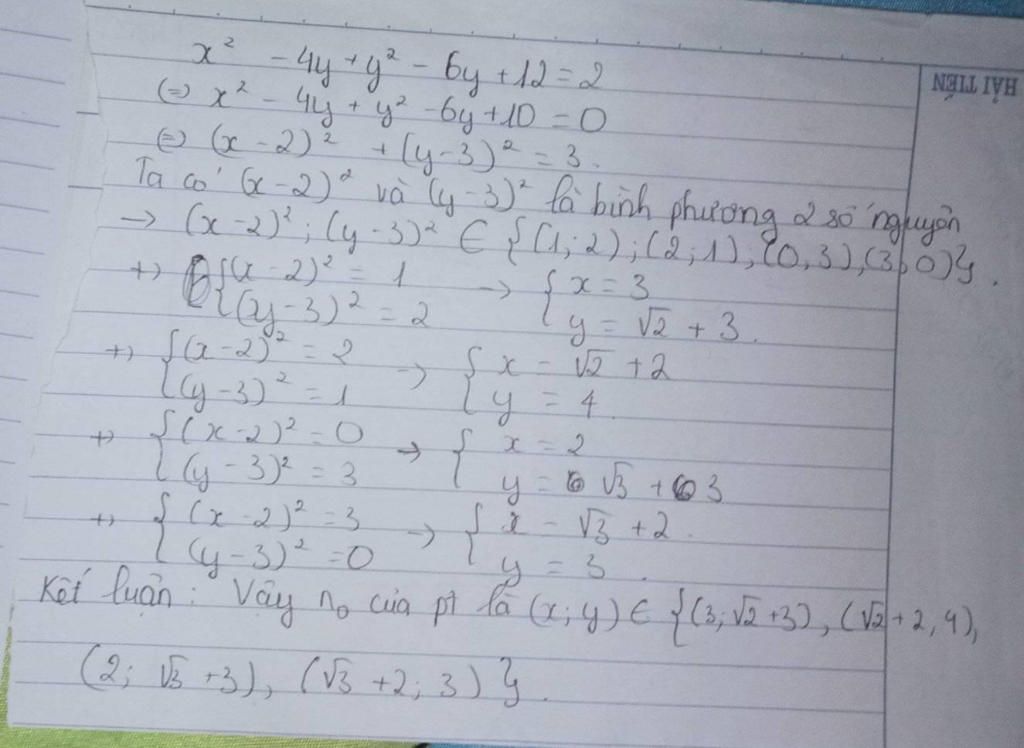 HẢI TIẾN
x² - 4y + y² - 6y + 12 = 2
(=) x² - 4y + y² - 6y + 10 = 0
(=) (x - 2)² + (y - 3)² = 3.
Ta có (x - 2)² và (y - 3)² là bình phương 2 số nguyên
→ (x - 2)² ; (y - 3)² ∈ {(1; 2) ; (2; 1) ; (0, 3), (3, 0)}.
+) { (x - 2)² = 1 → { x = 3
(y - 3)² = 2 y = √2 + 3.
+) { (x - 2)² = 2 → { x = √2 + 2
(y - 3)² = 1 y = 4.
+) { (x - 2)² = 0 → { x = 2
(y - 3)² = 3 y = √3 + 3
+) { (x - 2)² = 3 → { x = √3 + 2.
(y - 3)² = 0 y = 3.
Kết luận : Vậy no của pt là (x; y) ∈ {(3; √2 + 3), (√2 + 2, 4),
(2; √3 + 3), (√3 + 2; 3)}.